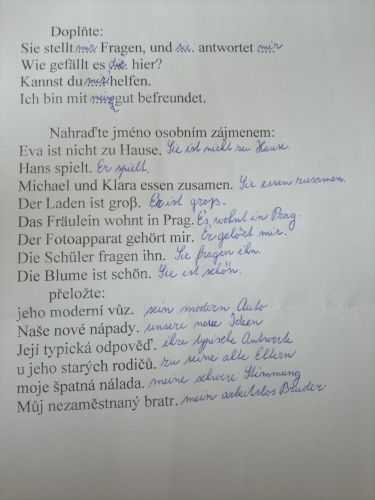 Doplňte:
Sie stellt mir Fragen, und sie antwortet mir
Wie gefällt es dir hier?
Kannst du mir helfen.
Ich bin mit gut befreundet.
Nahraďte jméno osobním zájmenem:
Eva ist nicht zu Hause. Sie ist nicht zu Hause.
Hans spielt. Er spielt.
Michael und Klara essen zusamen. Sie essen zusamen.
Der Laden ist groβ. Er ist groß.
Das Fräulein wohnt in Prag. Es wohnt in Prag.
Der Fotoapparat gehört mir. Er gehört mir.
Die Schűler fragen ihn. Sie fragen ihn.
Die Blume ist schön. Sie ist schön.
přeložte:
jeho moderní vůz. sein modern Auto
Naše nové nápady. unsere neue Ideen
Její typická odpověď. ihre typische Antwork
u jeho starých rodičů. zu seine alte Eltern
moje špatná nálada. meine schwere Stimmung
Můj nezaměstnaný bratr. mein arbeitslos Bruder